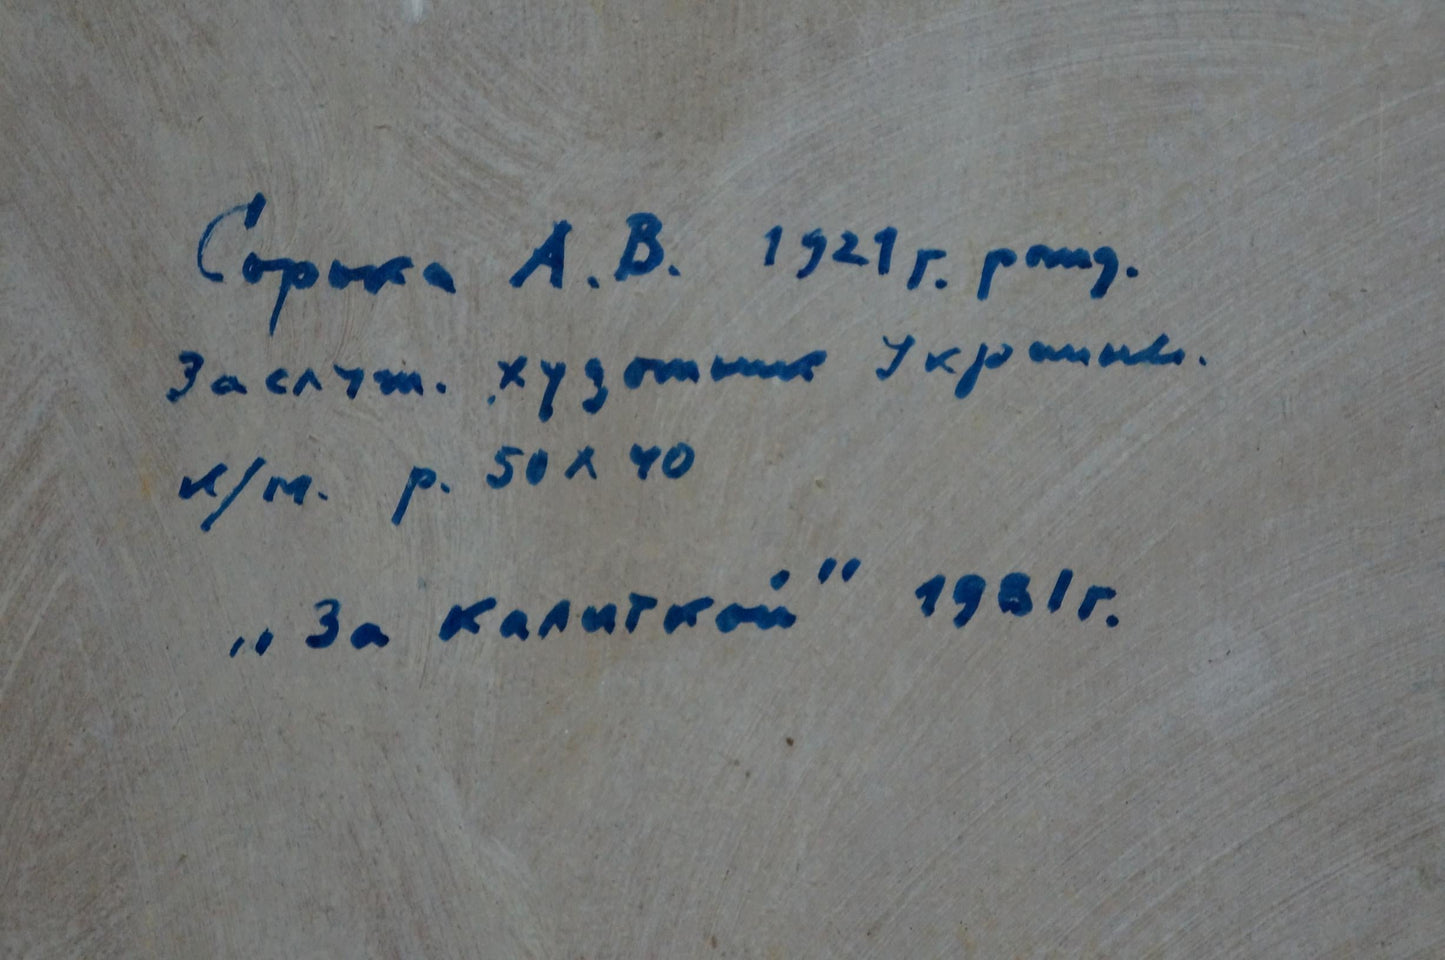 Сорока А.В. 1921 г. рожд.
Заслуж. художник Украины.
к/м. р. 50 х 40
„За калиткой" 1981 г.